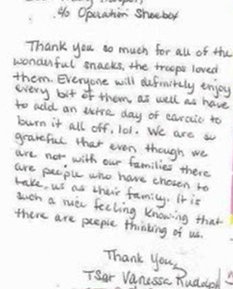 c/o Operation Shoebox
Thank you so much for all of the
wonderful snacks, the troops loved
them. Everyone will definitely enjoy
every bit of them, as well as have
to add an extra day of cardio to
burn it all off, lol. We are so
grateful that even though we
are not with our families there
are people who have chosen to
take us as their family. It is
such a nice feeling knowing that
there are people thinking of us.
Thank You,
TSgt Vanessa Rudolph